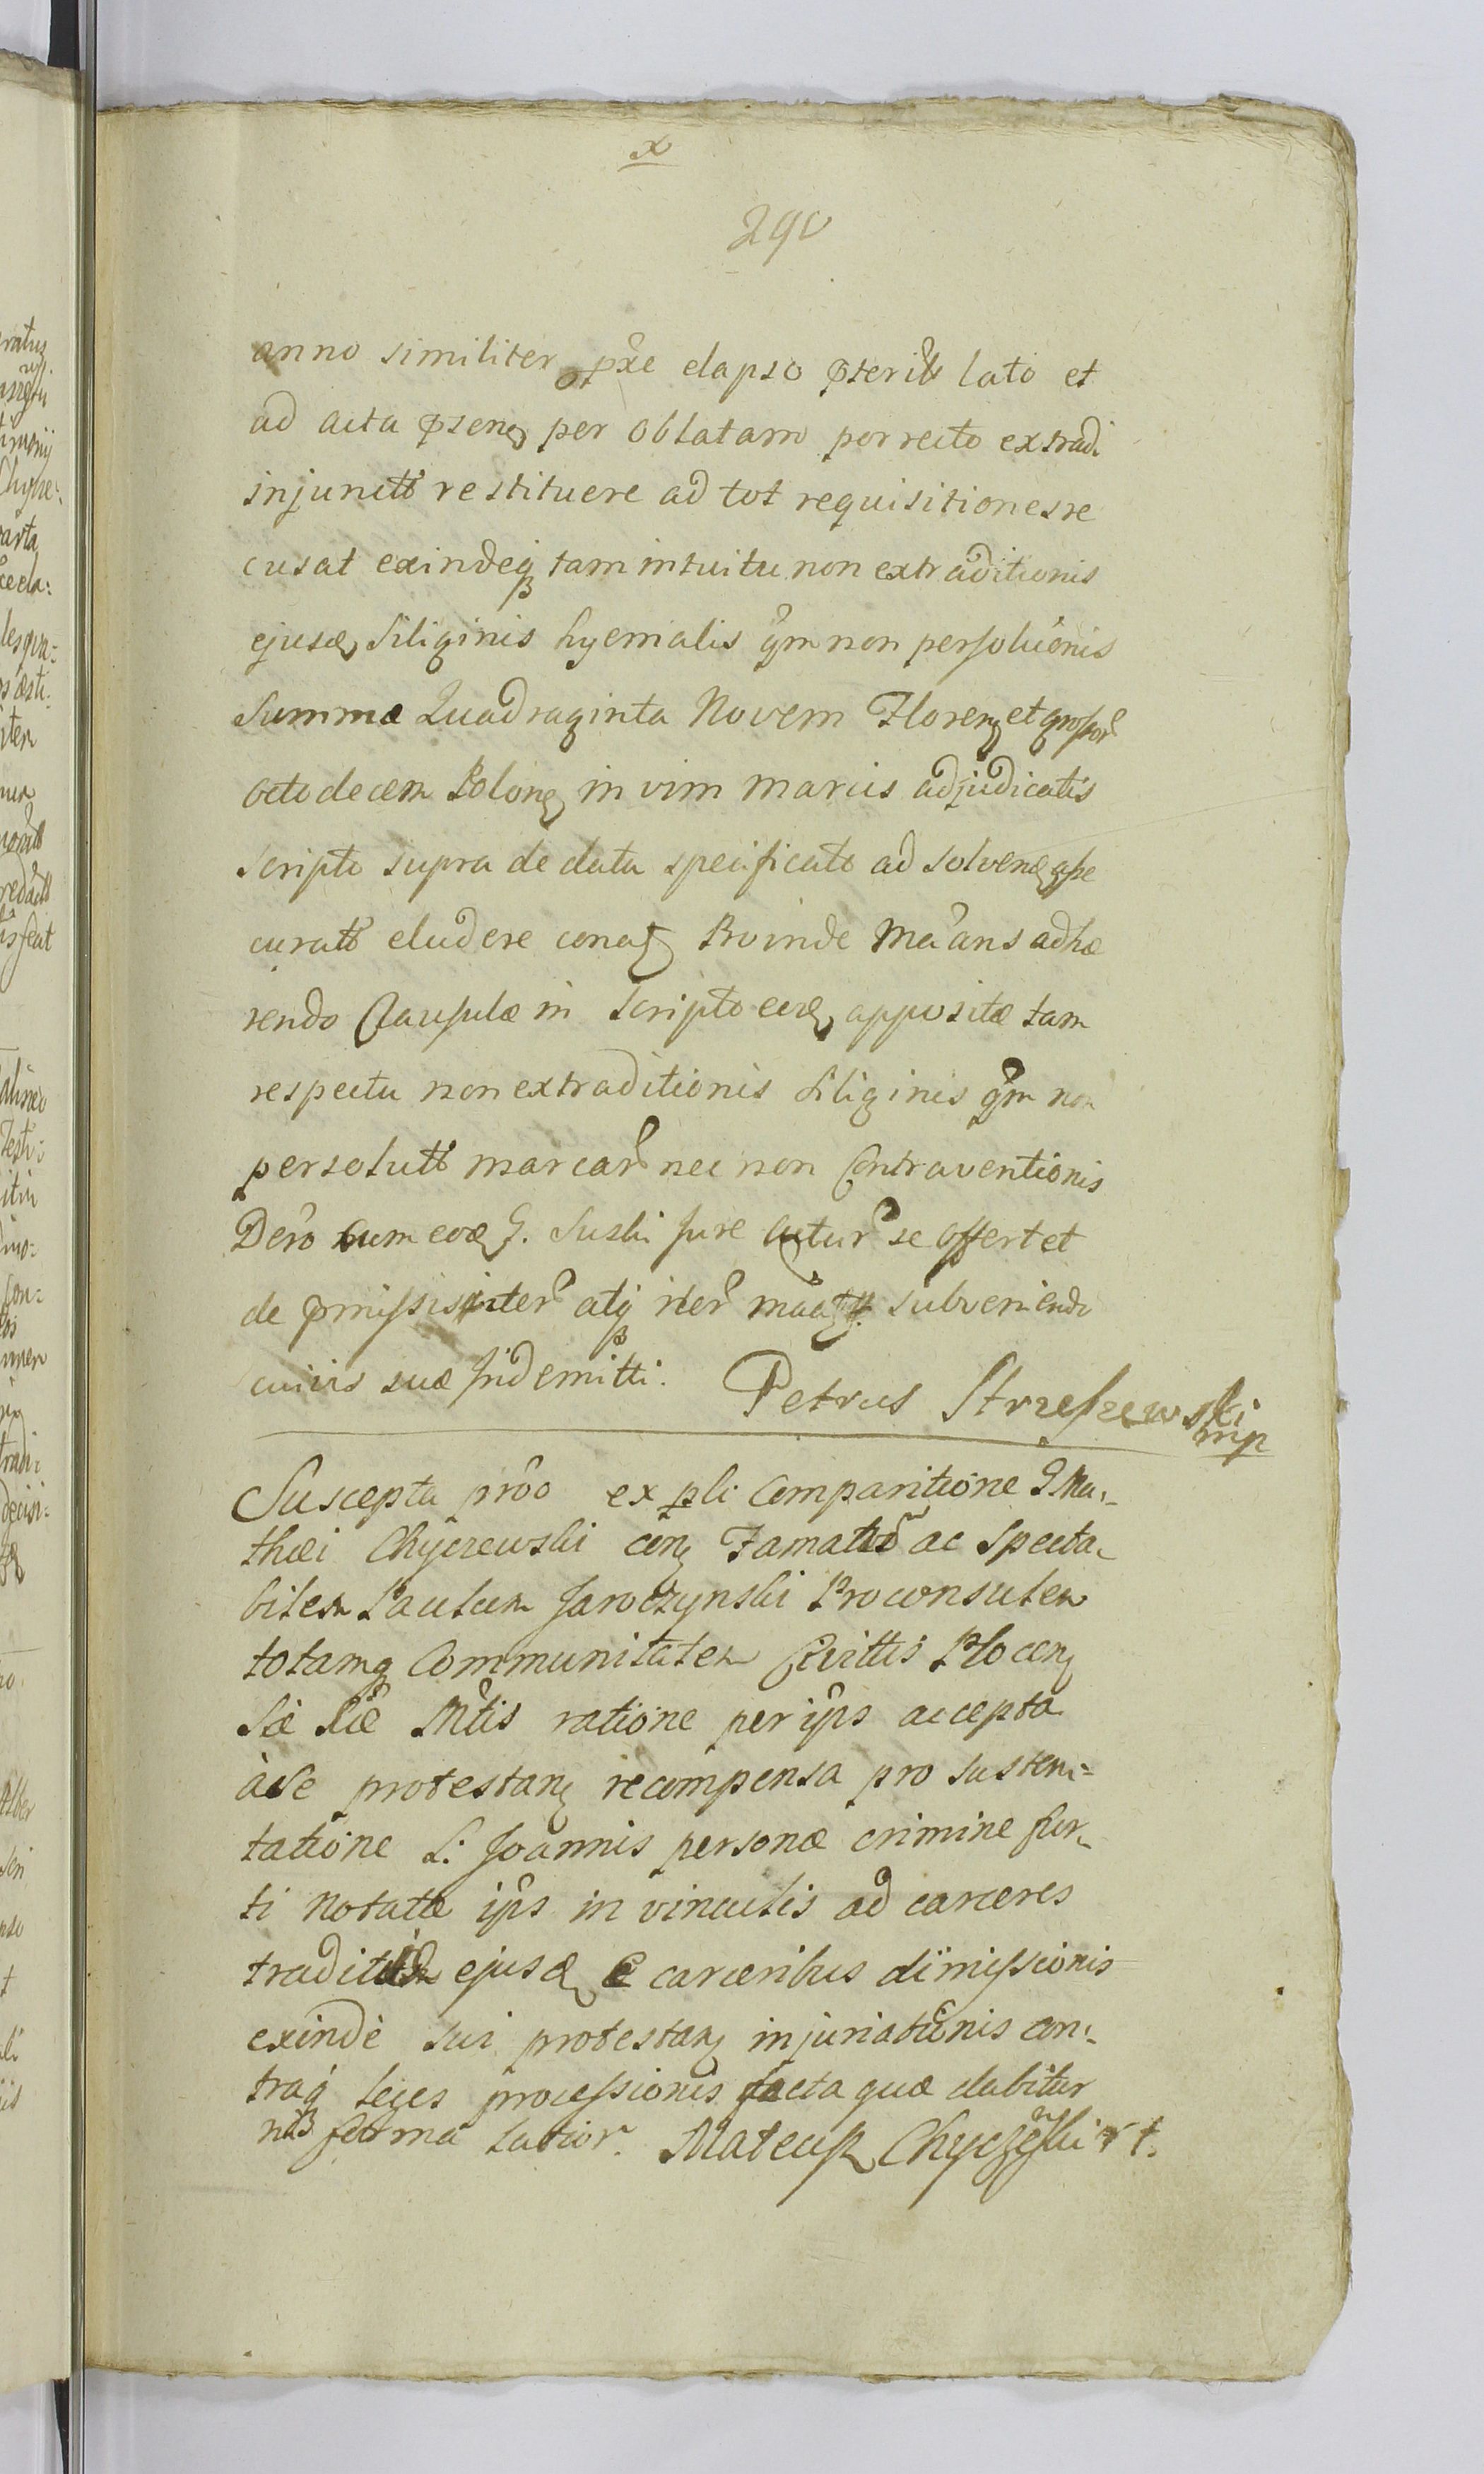 x
290
anno similiter pxe elapso pterits lato et
ad acta psenq per Oblatam porrecto extradi
injunctt restituere ad tot requisitiones re
cusat exindeq tam intuitu non extraditionis
ejusd Siliginis hyemalis qm non persolutionis
Summæ Quadraginta Novem Floren et grossor
octodecem Polon in vim Marcis adjudicatis
Scripto supra de data specificato ad solvend asse
curatt eludere conat Proinde Maans adhæ
rendo Clausulæ in Scripto eod appositæ tam
respectu non extraditionis Siliginis qm non
persolutt marcar nec non Contraventionis
Dero cum eod G. Suski Jure acturr se offert et
de pmissis inter atq iter subveniendo
cuivis suæ Indemitti. Petrus Strzeszewski
mp
Suscepta prõo ex psli Comparitione G Ma-
thæi Chyczewski con Famatũ ac Specta-
bilem Paulum Jaroczynski Proconsulem
totamq Communitatem Civittis Plocen
Sæ Ræ Mtis ratione per ips accepta
à se protestan recompensa pro susten-
tatione L: Joannis personæ crimine fur-
ti notatæ ips in vinculis ad carceres
tradit ejusd e carceribus dimissionis
exinde sui protestan injuriationis con-
traq leges processionis facta quæ dabitur
in forma latior. Mateusz Chyczewski